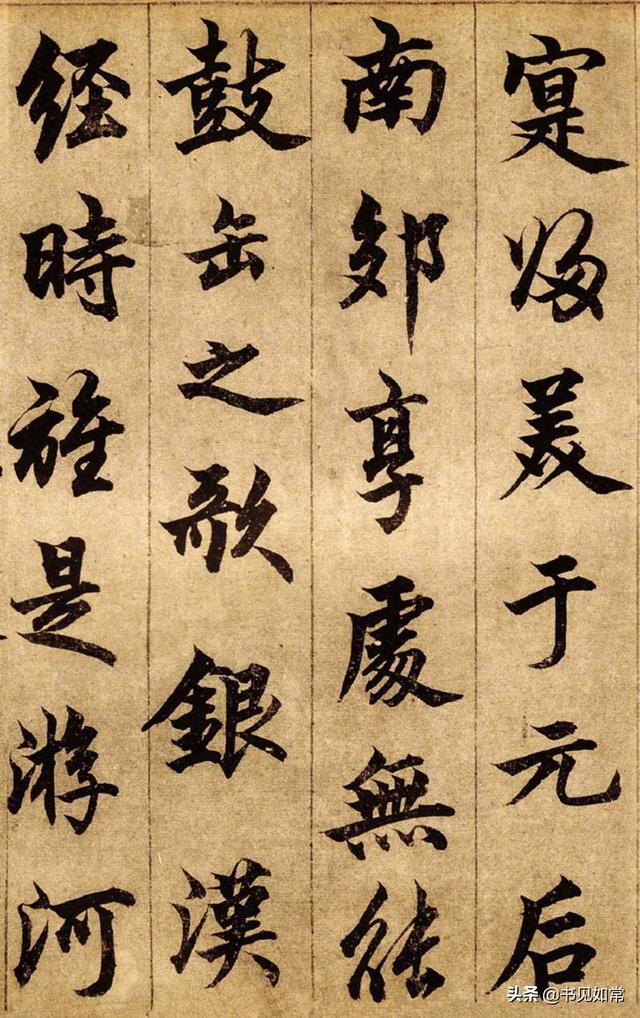 寔歸美于元后
南郊享處無能
鼓缶之歌銀漢
経時是游河
头条 @书见如常